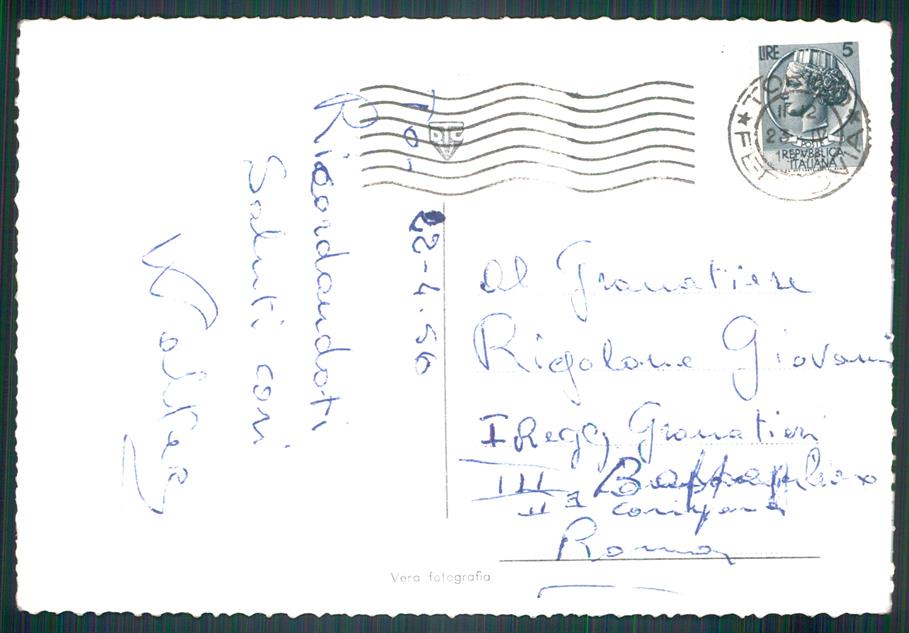 To.
22-4.56
Ricordandoti
Saluti cari
Walter
LIRE 5
TORINO
23 IV
POSTE
REPVBBLICA
ITALIANA
Al Granatiere
Rigolone Giovanni
I Regg Granatieri
III Battaglione
II a compagnia
Roma
Vera fotografia